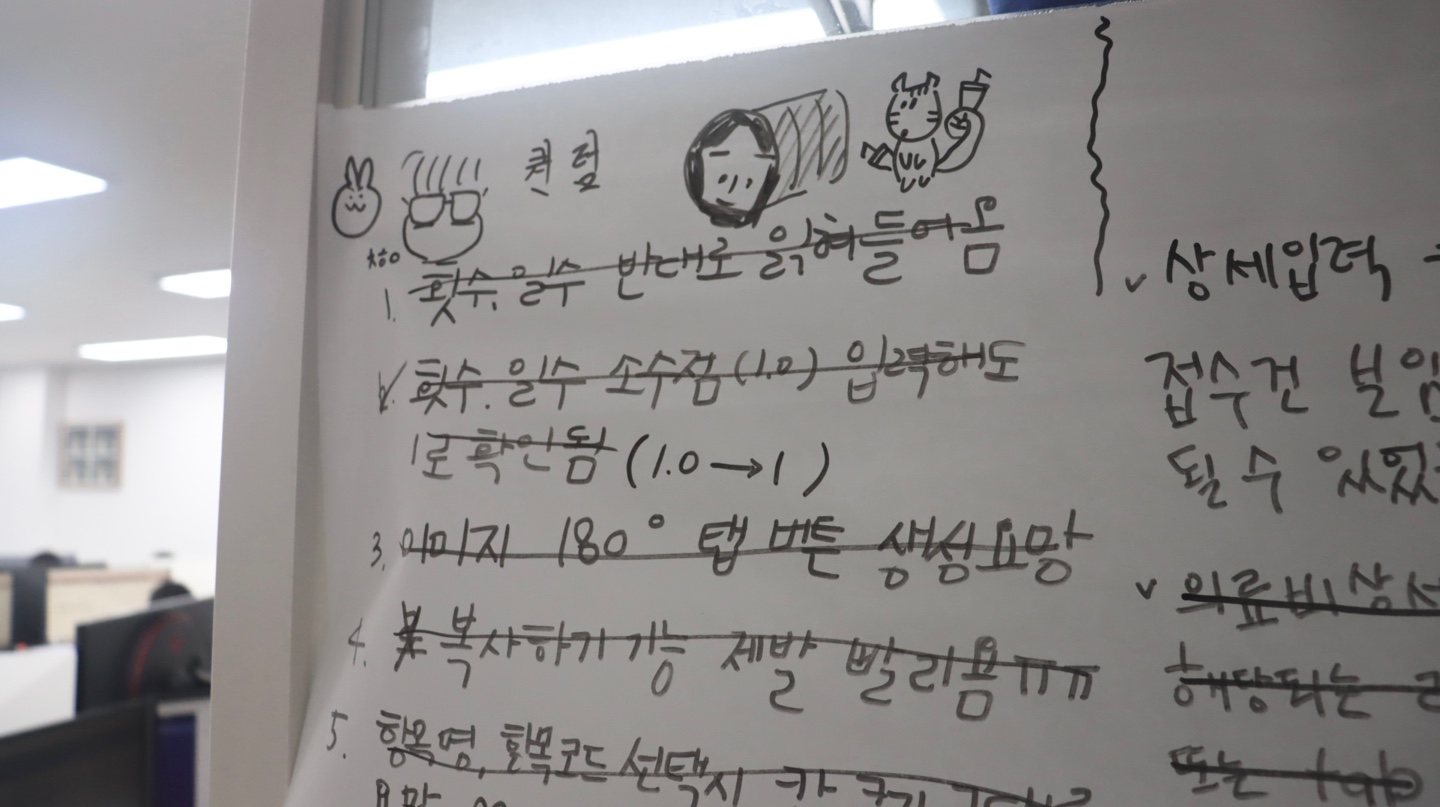 퀸 텀
1. 횟수. 일수 반대로 읽혀들어옴
2. 횟수. 일수 소수점 (1.0) 입력해도
1로 확인됨 (1.0→1)
3. 이미지 180° 탭 버튼 생성요망
4. 복사하기 기능 제발 빨리욤ㅠㅠ
5. 항목명, 항목코드 선택시 칸 크기
v 상세입력
접수건 보임
될 수 있었
v 의료비상세
해당되는
또는